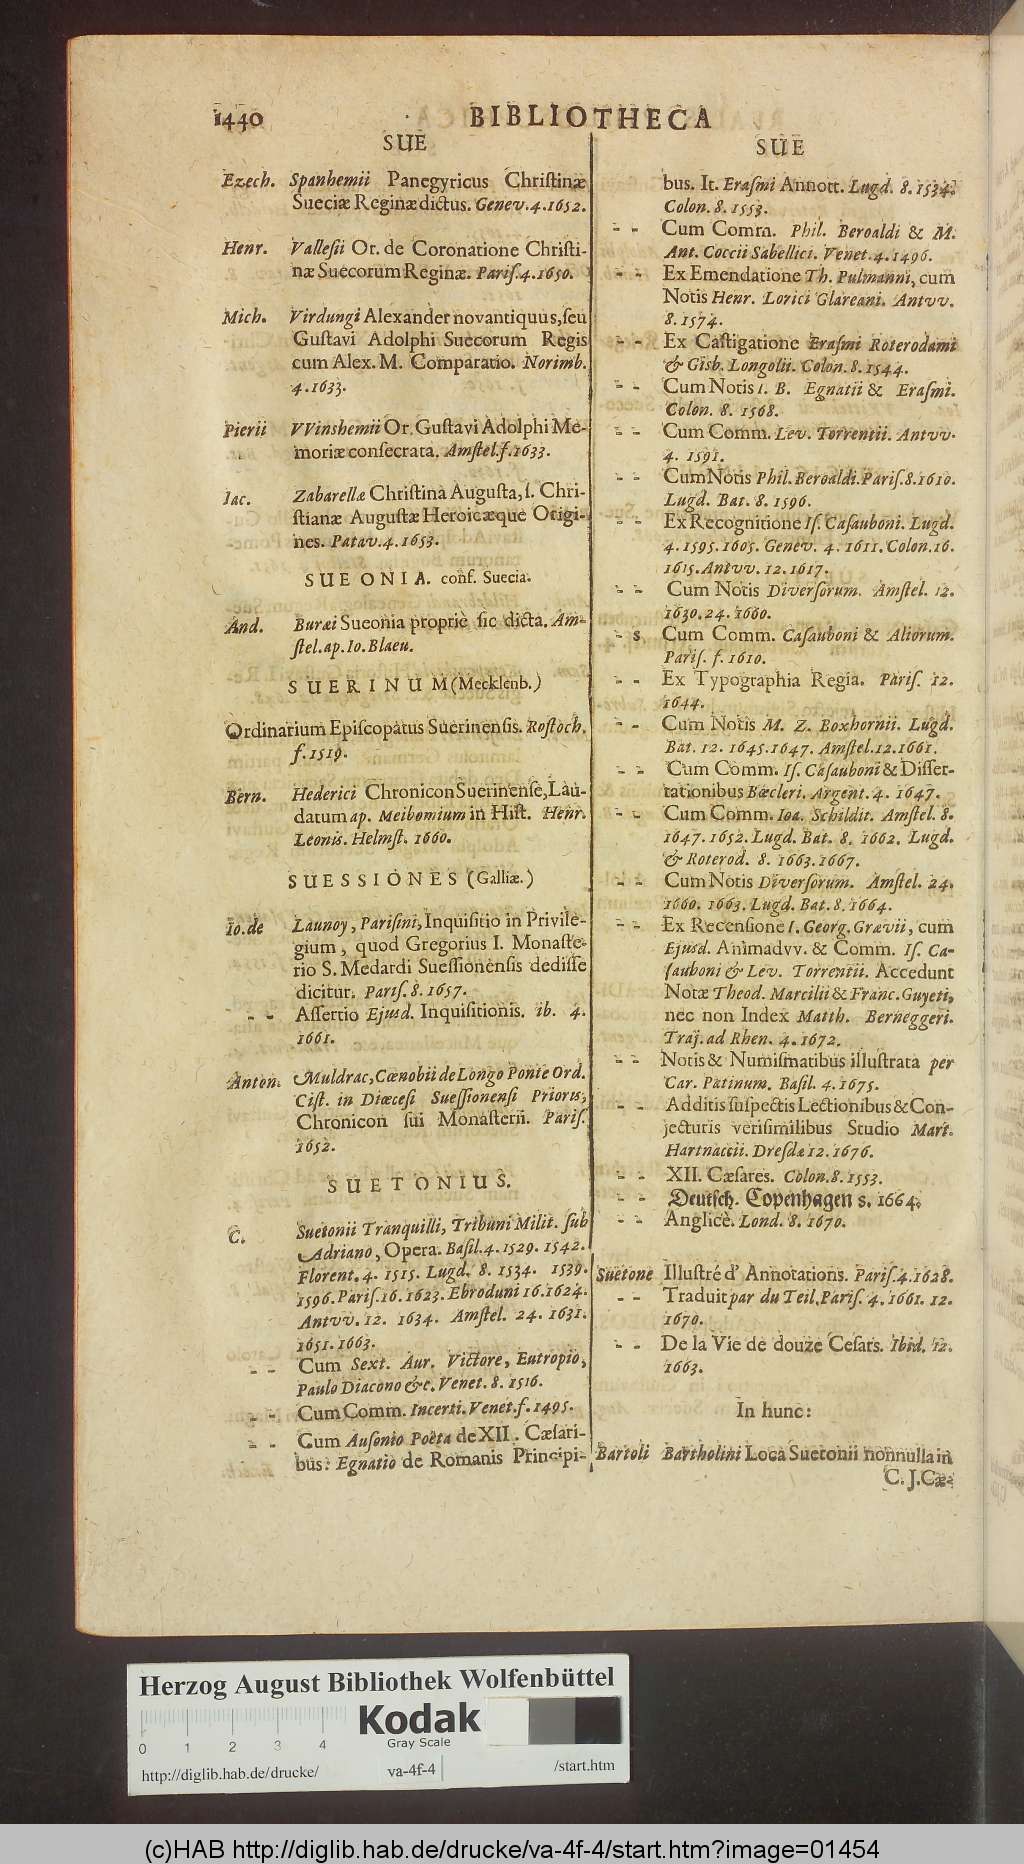 1440 BIBLIOTHECA
SUE
Ezech. Spanhemii Panegyricus Christinæ
Sueciæ Reginæ dictus. Genev. 4. 1652.
Henr. Vallesii Or. de Coronatione Christi-
næ Suecorum Reginæ. Paris. 4. 1650.
Mich. Virdungi Alexander novantiquus, seu
Gustavi Adolphi Suecorum Regis
cum Alex. M. Comparatio. Norimb.
4. 1633.
Pierii VVinshemii Or. Gustavi Adolphi Me-
moriæ consecrata. Amstel. f. 1633.
Iac. Zabarellæ Christina Augusta, s. Chri-
stianæ Augustæ Heroicæque Origi-
nes. Patav. 4. 1653.
SUEONIA. conf. Suecia.
And. Buræi Sueonia propriè sic dicta. Am-
stel. ap. Io. Blaeu.
SUERINUM (Mecklenb.)
Ordinarium Episcopatus Suerinensis. Rostoch.
f. 1519.
Bern. Hederici Chronicon Suerinense, Lau-
datum ap. Meibomium in Hist. Henr.
Leonis. Helmst. 1660.
SUESSIONES (Galliæ.)
Io. de Launoy, Parisini, Inquisitio in Privile-
gium, quod Gregorius I. Monaste-
rio S. Medardi Suessionensis dedisse
dicitur. Paris. 8. 1657.
- - Assertio Ejusd. Inquisitionis. ib. 4.
1661.
Anton. Muldrac, Cœnobii de Longo Ponte Ord.
Cist. in Diœcesi Suessionensi Prioris,
Chronicon sui Monasterii. Paris.
1652.
SUETONIUS.
C. Suetonii Tranquilli, Tribuni Milit. sub
Adriano, Opera. Basil. 4. 1529. 1542.
Florent. 4. 1515. Lugd. 8. 1534. 1539.
1596. Paris. 16. 1623. Ebroduni 16. 1624.
Antvv. 12. 1634. Amstel. 24. 1631.
1651. 1663.
- - Cum Sext. Aur. Victore, Eutropio,
Paulo Diacono &c. Venet. 8. 1516.
- - Cum Comm. Incerti. Venet. f. 1495.
- - Cum Ausonio Poëta de XII. Cæsari-
bus: Egnatio de Romanis Principi-
SUE
bus. It. Erasmi Annott. Lugd. 8. 1534.
Colon. 8. 1553.
- - Cum Comm. Phil. Beroaldi & M.
Ant. Coccii Sabellici. Venet. 4. 1496.
- - Ex Emendatione Th. Pulmanni, cum
Notis Henr. Lorici Glareani. Antvv.
8. 1574.
- - Ex Castigatione Erasmi Roterodami
& Gisb. Longolii. Colon. 8. 1544.
- - Cum Notis I. B. Egnatii & Erasmi.
Colon. 8. 1568.
- - Cum Comm. Lev. Torrentii. Antvv.
4. 1591.
- - Cum Notis Phil. Beroaldi. Paris. 8. 1610.
Lugd. Bat. 8. 1596.
- - Ex Recognitione Is. Casauboni. Lugd.
4. 1595. 1605. Genev. 4. 1611. Colon. 16.
1615. Antvv. 12. 1617.
- - Cum Notis Diversorum. Amstel. 12.
1630. 24. 1660.
- s Cum Comm. Casauboni & Aliorum.
Paris. f. 1610.
- - Ex Typographia Regia. Paris. 12.
1644.
- - Cum Notis M. Z. Boxhornii. Lugd.
Bat. 12. 1645. 1647. Amstel. 12. 1661.
- - Cum Comm. Is. Casauboni & Disser-
tationibus Bœcleri. Argent. 4. 1647.
- - Cum Comm. Ioa. Schildii. Amstel. 8.
1647. 1652. Lugd. Bat. 8. 1662. Lugd.
& Roterod. 8. 1663. 1667.
- - Cum Notis Diversorum. Amstel. 24.
1660. 1663. Lugd. Bat. 8. 1664.
- - Ex Recensione I. Georg. Grævii, cum
Ejusd. Animadvv. & Comm. Is. Ca-
sauboni & Lev. Torrentii. Accedunt
Notæ Theod. Marcilii & Franc. Guyeti,
nec non Index Matth. Berneggeri.
Traj. ad Rhen. 4. 1672.
- - Notis & Numismatibus illustrata per
Car. Patinum. Basil. 4. 1675.
- - Additis suspectis Lectionibus & Con-
jecturis verisimilibus Studio Mart.
Hartnaccii. Dresdæ 12. 1676.
- - XII. Cæsares. Colon. 8. 1553.
- - Deutsch. Copenhagen s. 1664.
- - Anglicè. Lond. 8. 1670.
Suetone Illustré d' Annotations. Paris. 4. 1628.
- - Traduit par du Teil. Paris. 4. 1661. 12.
1670.
- - De la Vie de douze Cesars. Ibid. 12.
1663.
In hunc:
Bartoli Bartholini Loca Suetonii nonnulla in
C. J. Cæ-
Herzog August Bibliothek Wolfenbüttel
Kodak
Gray Scale
0 1 2 3 4
http://diglib.hab.de/drucke/ va-4f-4 /start.htm
(c)HAB http://diglib.hab.de/drucke/va-4f-4/start.htm?image=01454